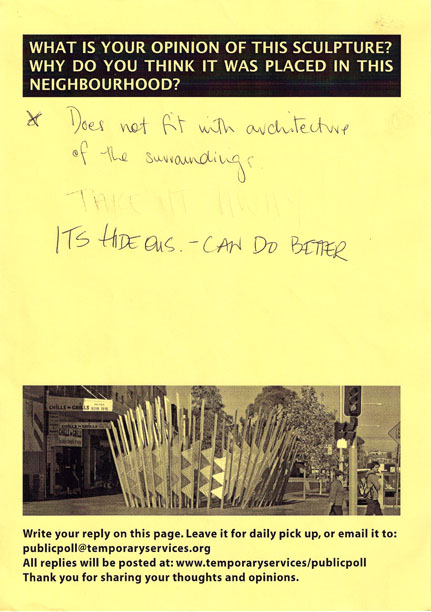 WHAT IS YOUR OPINION OF THIS SCULPTURE?
WHY DO YOU THINK IT WAS PLACED IN THIS
NEIGHBOURHOOD?
Does not fit with architecture
of the surroundings.
TAKE IT AWAY
ITS HIDEOUS. - CAN DO BETTER
CHILLS N GRILLS
Write your reply on this page. Leave it for daily pick up, or email it to:
publicpoll@temporaryservices.org
All replies will be posted at: www.temporaryservices/publicpoll
Thank you for sharing your thoughts and opinions.